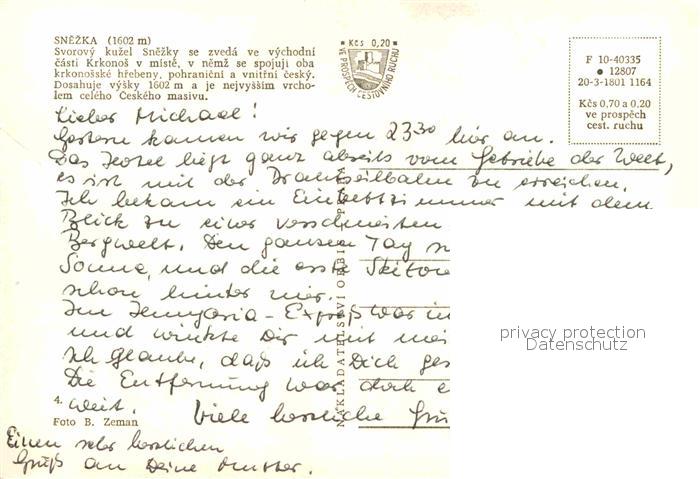 SNĚŽKA (1602 m)
Svorový kužel Sněžky se zvedá ve východní
části Krkonoš v místě, v němž se spojuji oba
krkonošské hřebeny, pohraniční a vnitřní český.
Dosahuje výšky 1602 m a je nejvyšším vrcho-
lem celého Českého masivu.
★ Kčs 0,20 ★
VE PROSPĚCH CESTOVNÍHO RUCHU
F 10-40335
● 12807
20-3-1801 1164
Kčs 0,70 a 0,20
ve prospěch
cest. ruchu
Lieber Michael!
Gestern kamen wir gegen 23³⁰ hier an.
Das Hotel liegt ganz abseits vom Getriebe der Welt,
es ist mit der Drahtseilbahn zu erreichen.
Ich bekam ein Einbettzimmer mit dem
Blick zu einer verschneiten
Bergwelt. Den ganzen Tag
Sonne, und die erste Skitou
schon hinter mir.
Im Hungaria-Expreß war
und winkte Dir mit
Ich glaube, daß ich Dich
Die Entfernung war doch
weit. Viele herzliche Grü
Einen sehr herzlichen
Gruß an Deine Mutter.
4.
Foto B. Zeman
NAKLADATELSTVÍ ORBIS
privacy protection
Datenschutz